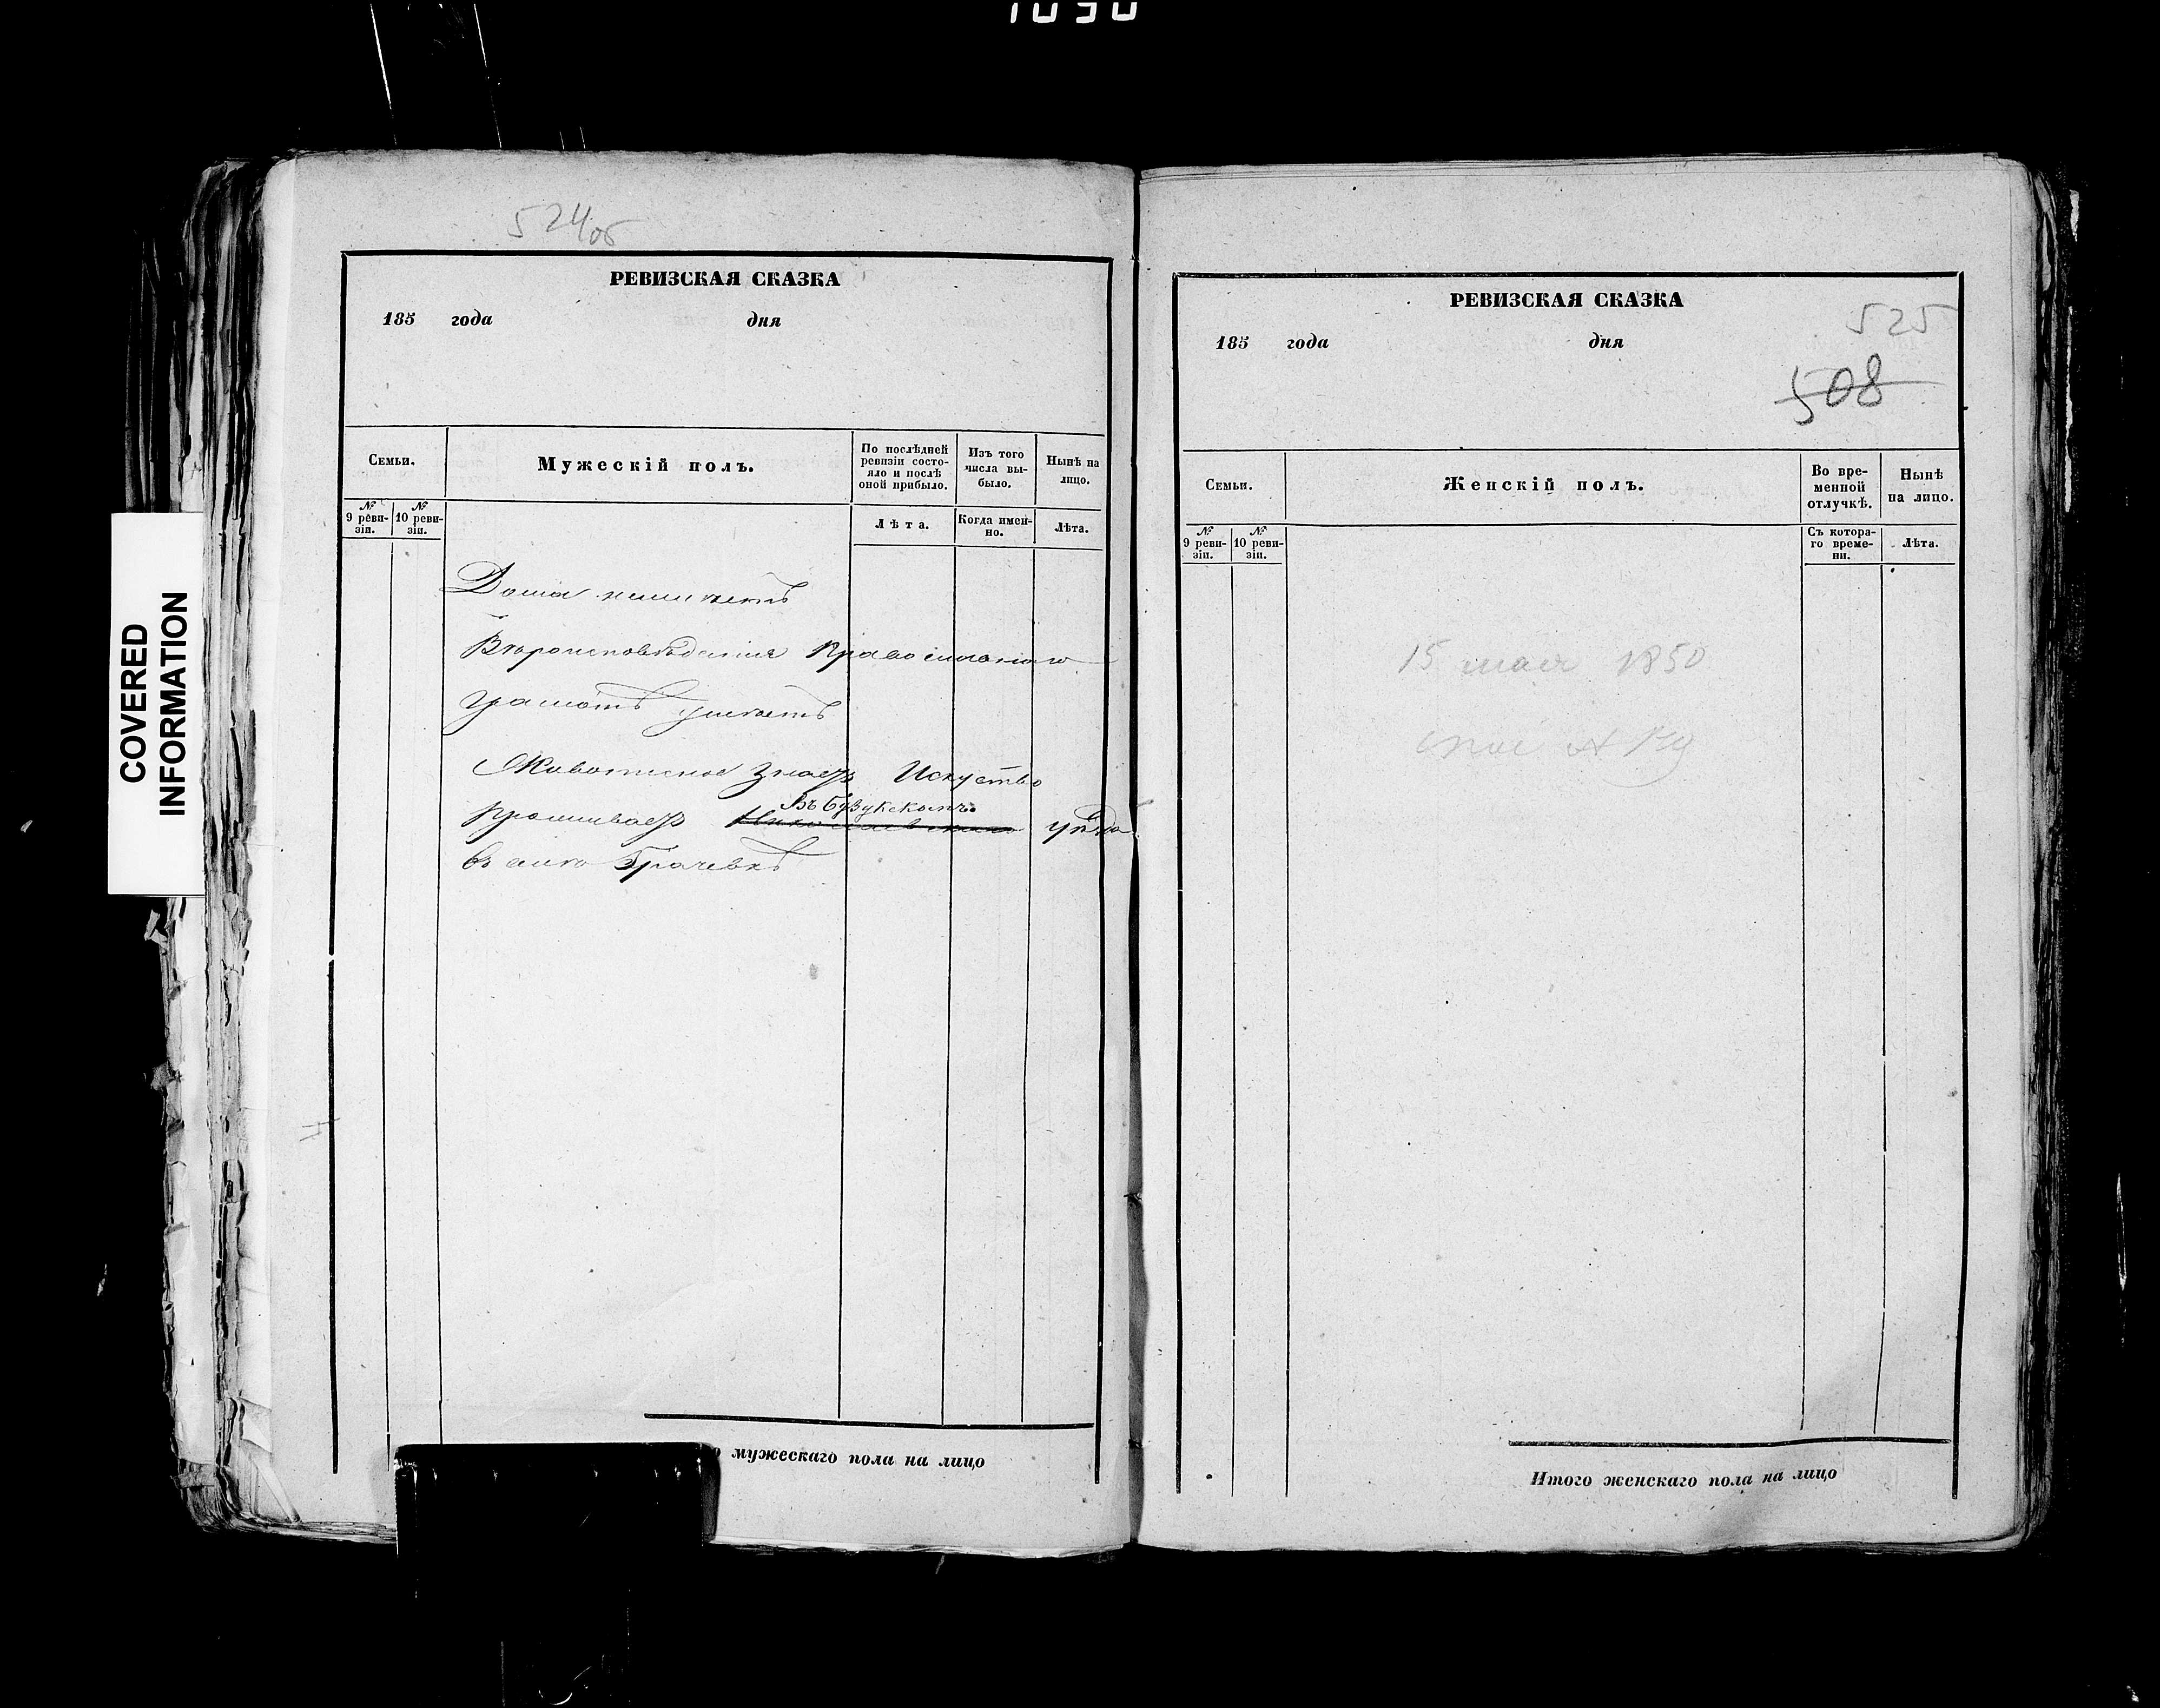 1090
COVERED
INFORMATION
524об
РЕВИЗСКАЯ СКАЗКА
185 года дня
Семьи.
Мужескій полъ.
По послѣдней ревизіи состояло и послѣ оной прибыло.
Изъ того числа выбыло.
Нынѣ на лицо.
№ 9 ревизіи.
№ 10 ревизіи.
Лѣта.
Когда именно.
Лѣта.
Дома неимѣетъ
Вѣроисповѣданія Православнаго
Грамотѣ умѣетъ
Живописное знаетъ Искуство
Въ Бузукскомъ
Проживаетъ Николаевскаго уѣзда
въ селѣ Грачевкѣ
мужескаго пола на лицо
РЕВИЗСКАЯ СКАЗКА
525
185 года дня
508
Семьи.
Женскій полъ.
Во временной отлучкѣ.
Нынѣ на лицо.
№ 9 ревизіи.
№ 10 ревизіи.
Съ котораго времени.
Лѣта.
15 мая 1850
Итого женскаго пола на лицо